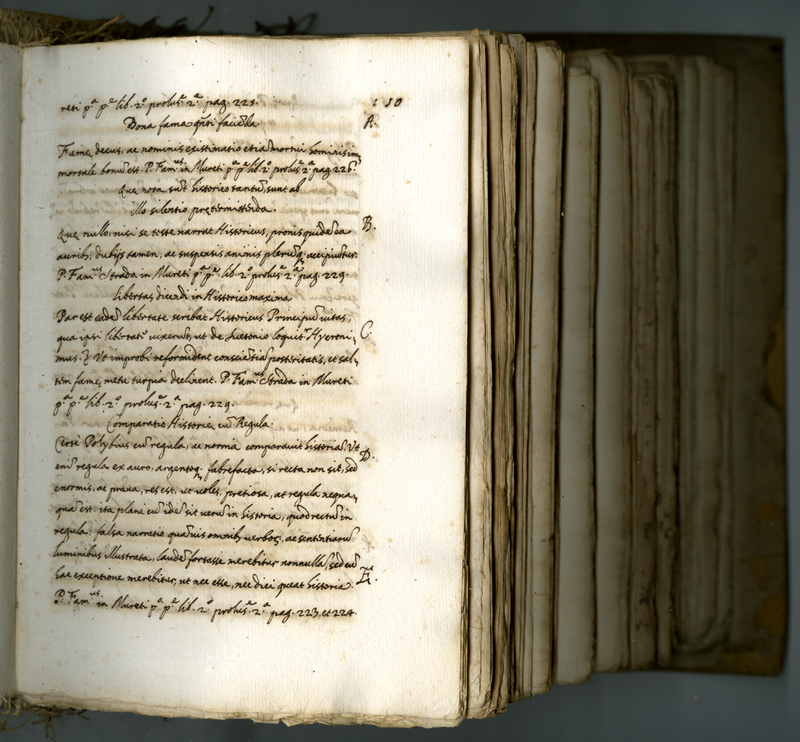 reti pª pᵉ lib. 2º prolus.ᵉ 2ª pag. 225.
Bona fama qᵐti faciēda
Fame decus, ac nominis existimatio etiā mortui hominis im-
mortale bonū est. P. Famᵘˢ in Mureti pª pᵉ lib. 2º prolus.ᵉ 2ª pag. 226.
Que nota sūt historico tantū, sunt ab
illo silentio pretermittēda.
Que nullo, nisi se teste narrat Historicus, pronis quidē ea
aurib, dubijs tamen, ac suspensis animis plerūq; accipiūtur.
P. Famᵘˢ Strada in Mureti pª pᵉ lib. 2º prolus.ᵉ 2ª pag. 229.
Libertas dicendi in Historico maxima
Par est eadē libertate scribat Historicus Principū vitas,
qua ipsi libertatᵉ vixerūt, ut de Suetonio loquitʳ Hyeroni-
mus. Ut improbi reformident conscientiā posteritatis, et sal-
tem fame, metu turpia declinent. P. Famᵘˢ Strada in Mureti
pª pᵉ lib. 2º prolus.ᵉ 2ª pag. 229.
Comparatio Historie cū Regula.
Certe Polybius cū regula, ac norma comparavit historiā. Ut
enī regula ex auro, argentoq; fabrefacta, si recta non sit, sed
enormis, ac prava, res est, ut voles, pretiosa, at regula nequa-
quā est. ita plane cū idē sit verū in historia, quod rectū in
regula. falsa narratio quāvis omnib verbor, ac sententiarū
luminibus illustrata, laudē fortasse merebitur nonnullā, sed cū
hac exceptione merebitur, ut nec esse, nec dici queat historia.
P. Famᵘˢ in Mureti pª pᵉ lib. 2º prolus.ᵉ 2ª pag. 223, et 224.
150
A.
B.
C.
D.
E.